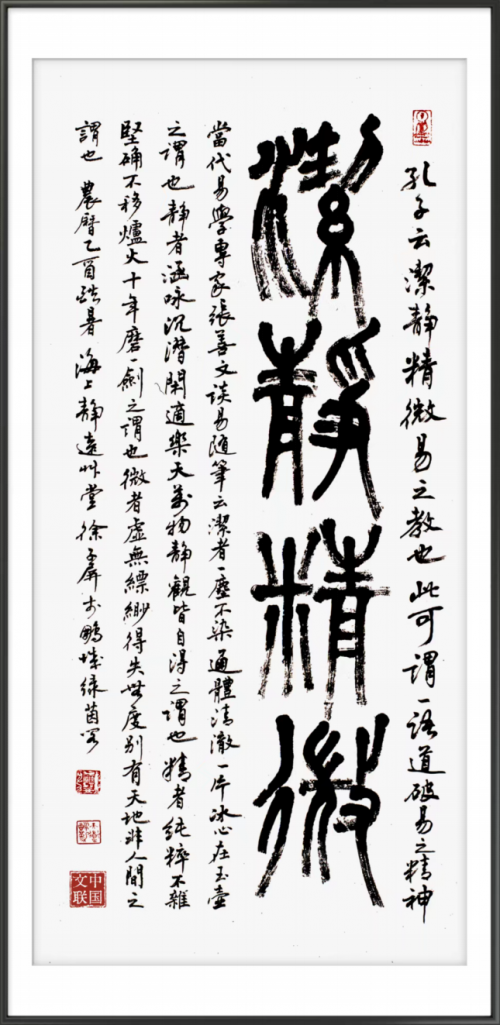 孔子云潔静精微易之教也此可謂一語道破易之精神
潔静精微
當代易學專家張善文談易随筆云潔者一塵不染通體清澈一片冰心在玉壺
之謂也静者涵咏沉潜閑適樂天萬物静觀皆自得之謂也精者純粹不雜
堅确不移爐火十年磨一劍之謂也微者虚無縹緲得失無度别有天地非人間之
謂也 農曆乙酉 暑 海上静遠草堂徐 屏于鵬城绿茵
中国文联